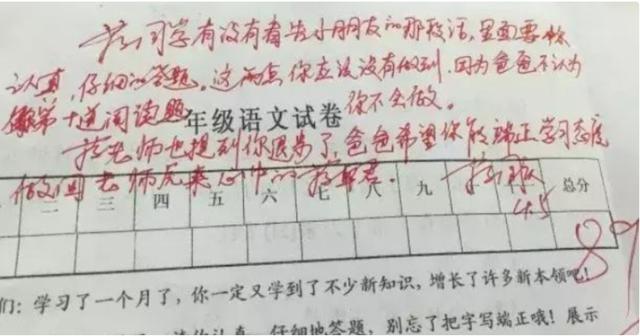 同学有没有看告小朋友的那段话,里面要你
认真,仔细的答题。这两点你应该没有做到,因为爸爸不认为
第十道阅读题 你不会做。
年级语文试卷
老师也提到你退步了,爸爸希望你能端正学习态度
做回老师原来心中的
二 三 四 五 六 七 八 九 总分
4.5
89
们:学习了一个月了,你一定又学到了不少新知识,增长了许多新本领吧!
仔细地答题,别忘了把字写端正哦!展示